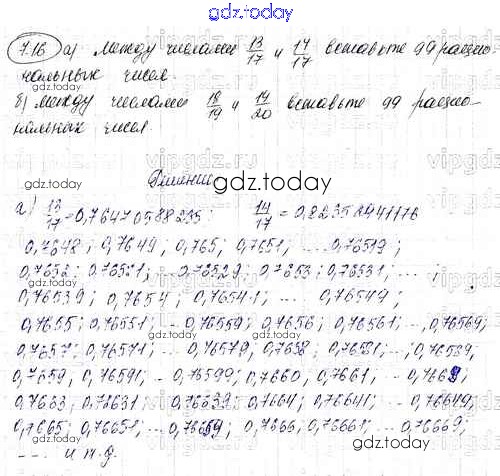 gdz.today
7.16 а) между числами 13/17 и 14/17 вставьте 99 рацио-
нальных чисел.
б) между числами 18/19 и 14/20 вставьте 99 рацио-
нальных чисел
gdz.today
а) 13/17 = 0,76470588235; 14/17 = 0,82352941176
0,7648; 0,7649; 0,765; 0,7651; ... 0,76519;
0,7652; 0,76521; ... 0,76529; 0,7653; 0,76531; ...
0,76539; 0,7654; 0,76541; ... 0,76549;
0,7655; 0,76551; ... 0,76559; 0,7656; 0,76561; ... 0,76569;
0,7657; 0,76571; ... 0,76579; 0,7658; 0,76581; ... 0,76589,
0,7659, 0,76591, ... 0,76599; 0,7660, 0,7661, ... 0,7669;
0,7663, 0,76631, ... 0,76639; 0,7664; 0,76641; ... 0,76649,
0,7665; 0,76651; ... 0,76659; 0,7666, 0,76661; ... 0,76669;
... и т.д.
gdz.today